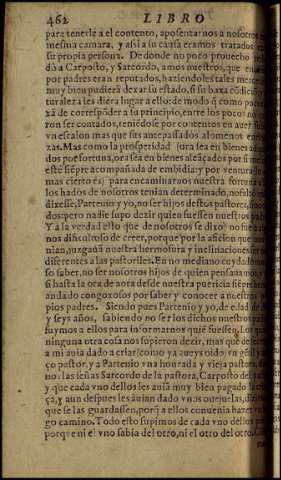 462 LIBRO
para tenerle a el contento, aposentar nos a nosotros
mesma camara, y assi a su causa eramos tratados
su propia persona. De donde no poco prouecho
dò a Carposto, y Sarcordo, amos nuestros, que en
por padres eran reputados, haziendoles tales merce
muy bien pudierã dexar su estado, si su baxa cõdiciõ
turaleza les diera lugar a ello: de modo q̃ como poco
xã de correspõder a su principio, entre los pocos no
ron ser contados, teniẽdose por contentos en auer
vn escalon mas que sus antepassados, alomenos en
zas. Mas como la prosperidad (ora sea en bienes
dos por fortuna, ora sea en bienes alcãçados por si
estè siẽpre acompañada de embidia: y por ventura
mas cierto es) para encaminarnos nuestra fortuna
los hados de nosotros tenian determinado, no falto
dixesse, Partenio y yo, no ser hijos destos pastores,
dos: pero nadie supo dezir quien fuessen nuestros
Y a la verdad esto que de nosotros se dixo no fue a
nos dificultoso de creer, porque por la aficion que
nian, juzgauã nuestra hermosura y inclinaciones ser
diferentes a las pastoriles. En no mediano cuydado
so saber, no ser nosotros hijos de quien pensauamos, y
si hasta la ora de aora desde nuestra puericia siẽpre
andado congoxosos por saber y conocer a nuestros
pios padres. Siendo pues Partenio y yo, de edad de
y seys años, sabiendo no ser los dichos nuestros
fuymos a ellos para informarnos quiẽ fuessen. Los
ninguna otra cosa nos supieron dezir, mas que
a mi auia dado a criar (como ya aueys oido) vn
ço pastor, y a Partenio vna honrada y vieja pastora,
no las señas Sarcordo de la pastora, Carposto del
y que cada vno dellos les auia muy bien pagado la
ça, y aun despues les auian dado vnas ouejuelas,
que se las guardassen, porq̃ a ellos conuenia hazer vn
go camino. Todo esto supimos de cada vno dellos
porque ni el vno sabia del otro, ni el otro del otro.